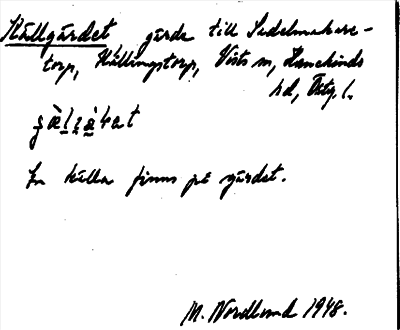 Källgärdet gärde till Sadelmakare-
torp, Källingstorp, Vists sn, Hanekinds
hd, Östg. l.
En källa finns på gärdet.
M. Nordlund 1948.